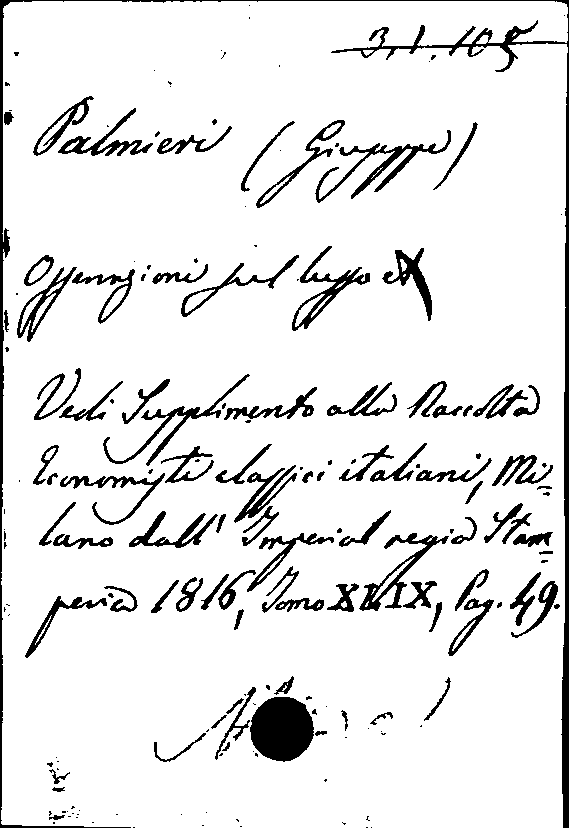 3.1.105
Palmieri (Giuseppe)
Osservazioni sul lusso et
Vedi Supplimento alla Raccolta
Economisti classici italiani, Mi=
lano dall' Imperial regia Stam=
peria 1816, Tomo XLIX, Pag. 49.